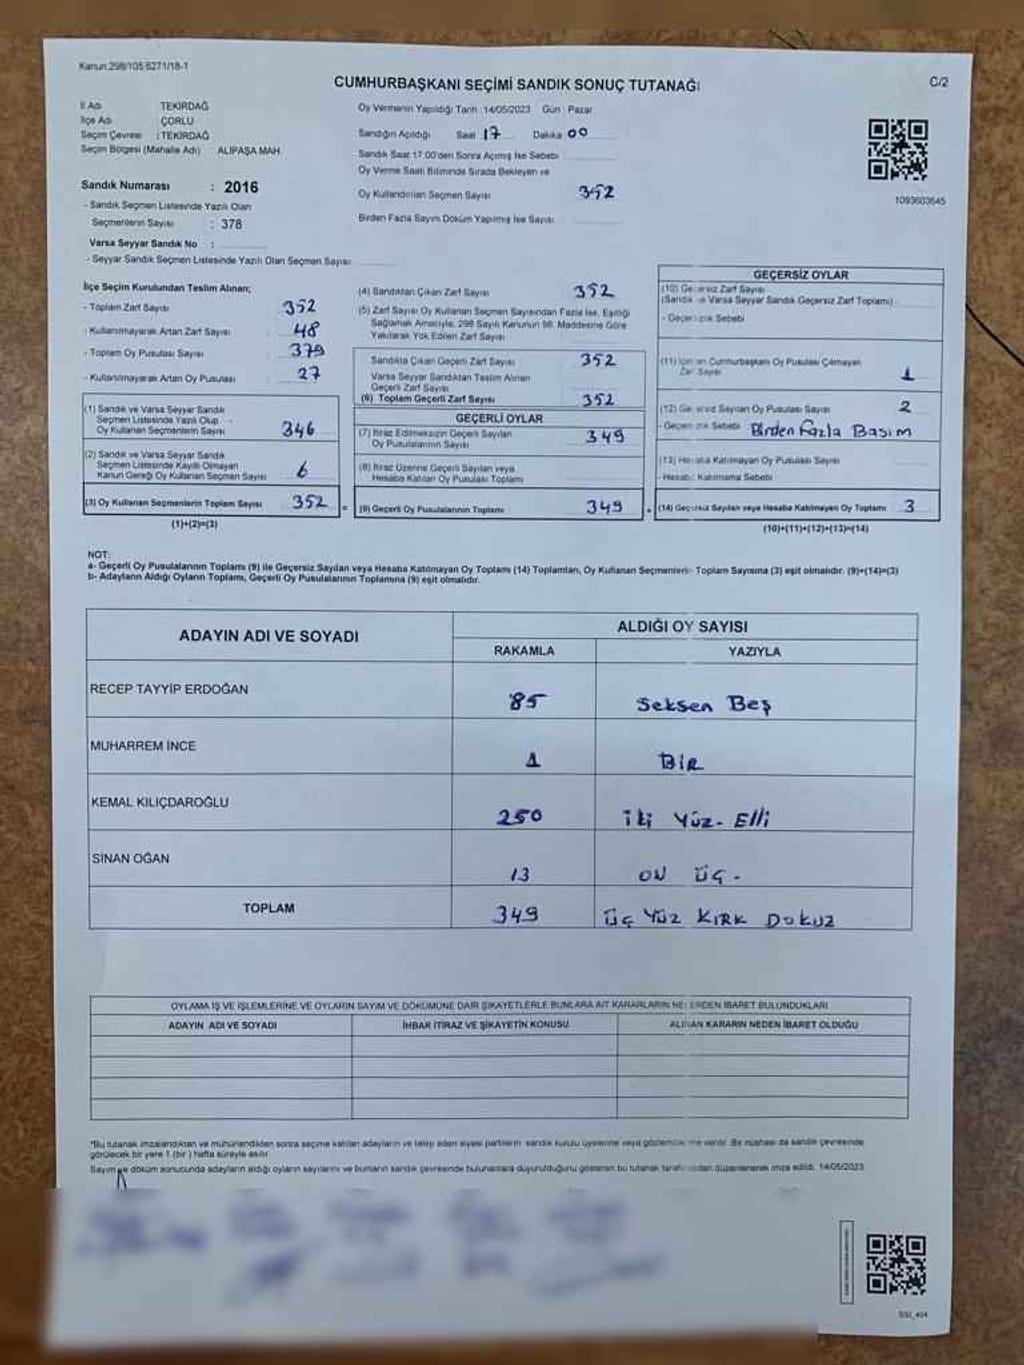 Kanun 298/105 6271/18-1
CUMHURBAŞKANI SEÇİMİ SANDIK SONUÇ TUTANAĞI
C/2
İl Adı TEKİRDAĞ
İlçe Adı ÇORLU
Seçim Çevresi : TEKİRDAĞ
Seçim Bölgesi (Mahalle Adı) : ALİPAŞA MAH.
Sandık Numarası : 2016
- Sandık Seçmen Listesinde Yazılı Olan
Seçmenlerin Sayısı : 378
Varsa Seyyar Sandık No :
- Seyyar Sandık Seçmen Listesinde Yazılı Olan Seçmen Sayısı
Oy Vermenin Yapıldığı Tarih : 14/05/2023 Gün : Pazar
Sandığın Açıldığı Saat 17 Dakika 00
Sandık Saat 17:00'den Sonra Açmış İse Sebebi
Oy Verme Saati Bitiminde Sırada Bekleyen ve
Oy Kullandırılan Seçmen Sayısı 352
Birden Fazla Sayım Döküm Yapılmış İse Sayısı
1093603645
İlçe Seçim Kurulundan Teslim Alınan;
- Toplam Zarf Sayısı 352
- Kullanılmayarak Artan Zarf Sayısı 48
- Toplam Oy Pusulası Sayısı 379
- Kullanılmayarak Artan Oy Pusulası 27
(1) Sandık ve Varsa Seyyar Sandık
Seçmen Listesinde Yazılı Olup
Oy Kullanan Seçmenlerin Sayısı 346
(2) Sandık ve Varsa Seyyar Sandık
Seçmen Listesinde Kayıtlı Olmayan
Kanun Gereği Oy Kullanan Seçmen Sayısı 6
(3) Oy Kullanan Seçmenlerin Toplam Sayısı 352
(1)+(2)=(3)
(4) Sandıktan Çıkan Zarf Sayısı 352
(5) Zarf Sayısı Oy Kullanan Seçmen Sayısından Fazla İse, Eşitliği
Sağlamak Amacıyla, 298 Sayılı Kanunun 98. Maddesine Göre
Yakılarak Yok Edilen Zarf Sayısı
Sandıkta Çıkan Geçerli Zarf Sayısı 352
Varsa Seyyar Sandıktan Teslim Alınan
Geçerli Zarf Sayısı
(6) Toplam Geçerli Zarf Sayısı 352
GEÇERLİ OYLAR
(7) İtiraz Edilmeksizin Geçerli Sayılan
Oy Pusulalarının Sayısı 349
(8) İtiraz Üzerine Geçerli Sayılan veya
Hesaba Katılan Oy Pusulası Toplamı
= (9) Geçerli Oy Pusulalarının Toplamı 349
GEÇERSİZ OYLAR
(10) Geçersiz Zarf Sayısı
(Sandık ve Varsa Seyyar Sandık Geçersiz Zarf Toplamı) -
- Geçersizlik Sebebi
(11) İçinden Cumhurbaşkanı Oy Pusulası Çıkmayan
Zarf Sayısı 1
(12) Geçersiz Sayılan Oy Pusulası Sayısı 2
- Geçersizlik Sebebi Birden Fazla Basım
(13) Hesaba Katılmayan Oy Pusulası Sayısı
- Hesaba Katılmama Sebebi
(14) Geçersiz Sayılan veya Hesaba Katılmayan Oy Toplamı 3
(10)+(11)+(12)+(13)=(14)
NOT:
a- Geçerli Oy Pusulalarının Toplamı (9) ile Geçersiz Sayılan veya Hesaba Katılmayan Oy Toplamı (14) Toplamları, Oy Kullanan Seçmenlerin Toplam Sayısına (3) eşit olmalıdır. (9)+(14)=(3)
b- Adayların Aldığı Oyların Toplamı, Geçerli Oy Pusulalarının Toplamına (9) eşit olmalıdır.
ADAYIN ADI VE SOYADI ALDIĞI OY SAYISI
RAKAMLA YAZIYLA
RECEP TAYYİP ERDOĞAN 85 Seksen Beş
MUHARREM İNCE 1 BİR
KEMAL KILIÇDAROĞLU 250 iki Yüz- Elli
SİNAN OĞAN 13 ON ÜÇ-
TOPLAM 349 ÜÇ YÜZ KIRK DOKUZ
OYLAMA İŞ VE İŞLEMLERİNE VE OYLARIN SAYIM VE DÖKÜMÜNE DAİR ŞİKAYETLERLE BUNLARA AİT KARARLARIN NELERDEN İBARET BULUNDUKLARI
ADAYIN ADI VE SOYADI İHBAR İTİRAZ VE ŞİKAYETİN KONUSU ALINAN KARARIN NEDEN İBARET OLDUĞU
*Bu tutanak imzalandıktan ve mühürlendikten sonra seçime katılan adayların ve talep eden siyasi partilerin sandık kurulu üyelerine veya gözlemcilerine verilir. Bir nüshası da sandık çevresinde
görülecek bir yere 1 (bir) hafta süreyle asılır.
Sayım ve döküm sonucunda adayların aldığı oyların sayılarını ve bunların sandık çevresinde bulunanlara duyurulduğunu gösteren bu tutanak tarafımızdan düzenlenerek imza edildi. 14/05/2023